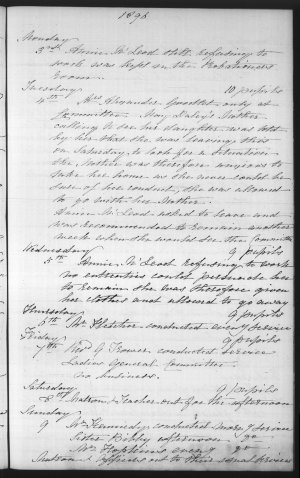 1896
Monday
3rd Annie McLeod still refusing to
work was kept in the Probationers
Room.
Tuesday 10 pupils
4th Mrs Alexander only at
Committee. May Daley's Mother
calling to see her daughter was told
by her that she was leaving them
on Saturday to look for a situation.
The Mother was therefore anxious to
take her home as she never could be
sure of her conduct, she was allowed
to go with her Mother.
Annie McLeod asked to leave and
was recommended to remain another
week when she would see the Committee
Wednesday 9 pupils
5th Annie McLeod Refusing to work
no entreaties could persuade her
to remain she was therefore given
her clothes and allowed to go away
Thursday 9 pupils
6th Mr conducted evening service
Friday 9 pupils
7th Revd G Trower conducted service
Ladies General Committee
no business.
Saturday 9 pupils
8th Matron, Teacher out for the afternoon
Sunday
9 Mr Kennedy conducted morng service
Sister Bibby afternoon " go
Mr Hopkins eveng " go
Matron & officers out to their usual service